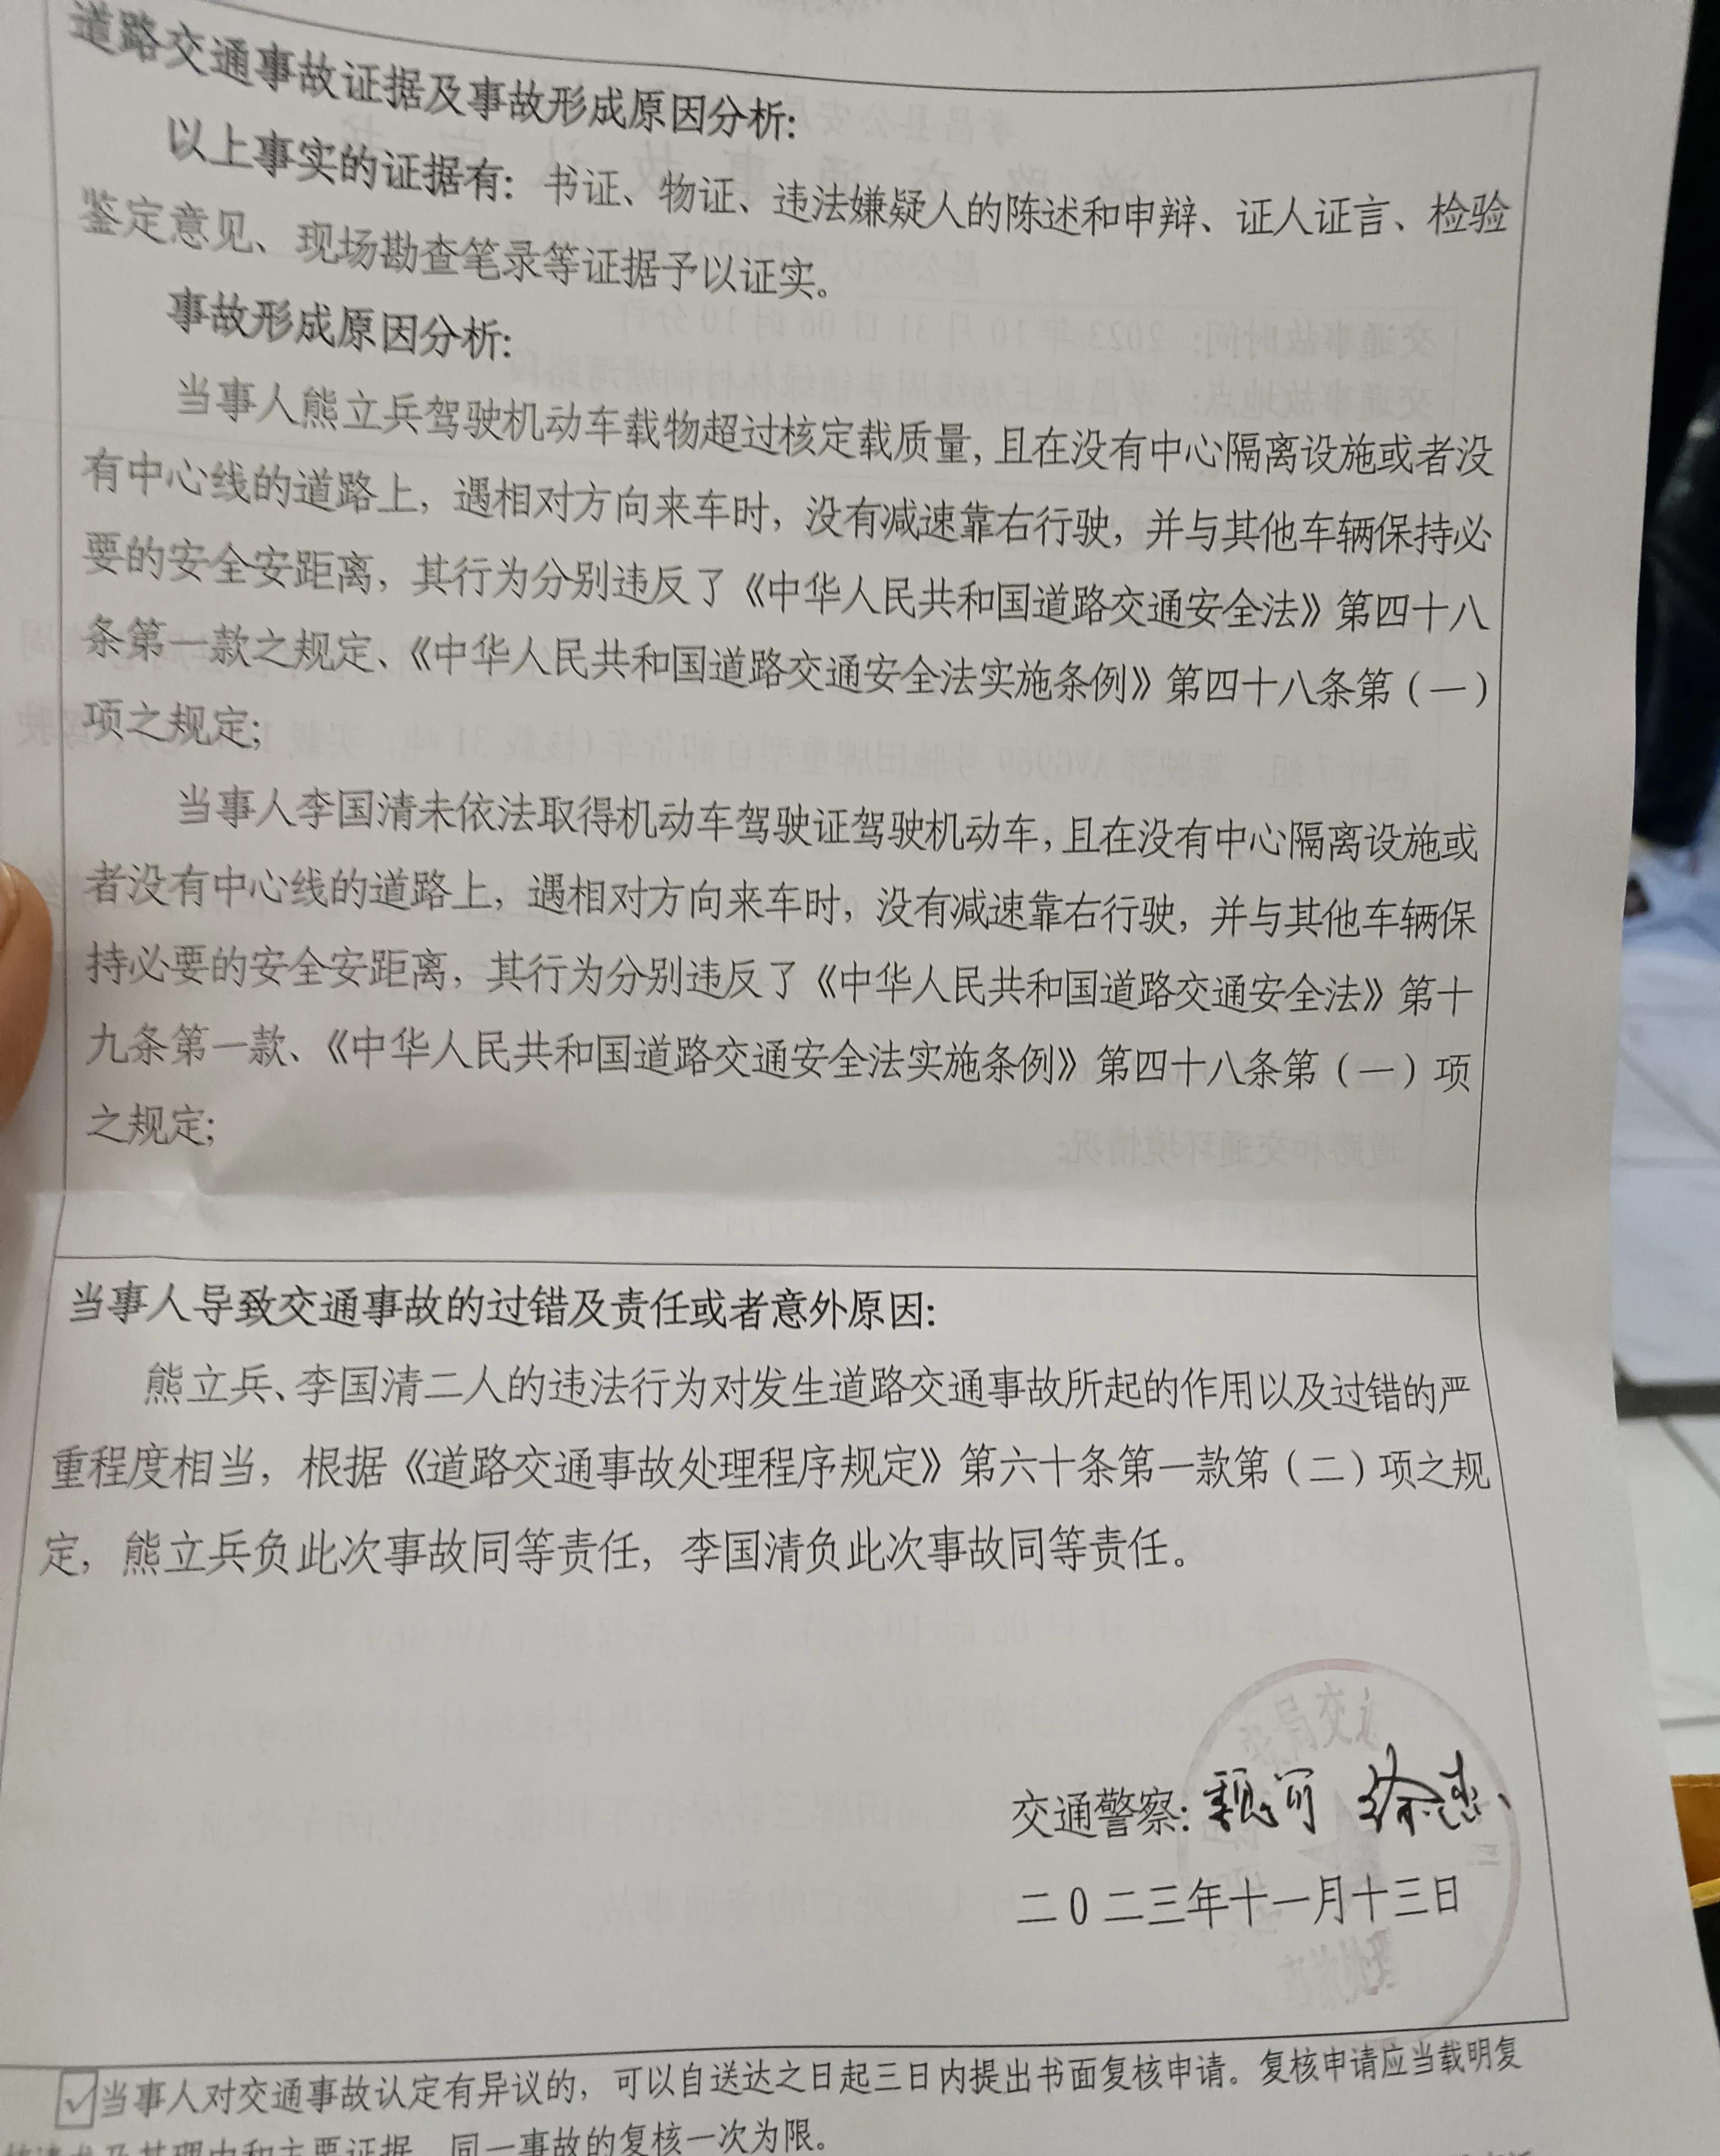 道路交通事故证据及事故形成原因分析:
以上事实的证据有: 书证、物证、违法嫌疑人的陈述和申辩、证人证言、检验
鉴定意见、现场勘查笔录等证据予以证实。
事故形成原因分析:
当事人熊立兵驾驶机动车载物超过核定载质量, 且在没有中心隔离设施或者没
有中心线的道路上, 遇相对方向来车时, 没有减速靠右行驶, 并与其他车辆保持必
要的安全安距离, 其行为分别违反了《中华人民共和国道路交通安全法》第四十八
条第一款之规定、《中华人民共和国道路交通安全法实施条例》第四十八条第（一）
项之规定;
当事人李国清未依法取得机动车驾驶证驾驶机动车, 且在没有中心隔离设施或
者没有中心线的道路上, 遇相对方向来车时, 没有减速靠右行驶, 并与其他车辆保
持必要的安全安距离, 其行为分别违反了《中华人民共和国道路交通安全法》第十
九条第一款、《中华人民共和国道路交通安全法实施条例》第四十八条第（一）项
之规定;
当事人导致交通事故的过错及责任或者意外原因:
熊立兵、李国清二人的违法行为对发生道路交通事故所起的作用以及过错的严
重程度相当, 根据《道路交通事故处理程序规定》第六十条第一款第（二）项之规
定, 熊立兵负此次事故同等责任, 李国清负此次事故同等责任。
交通警察:
二0二三年十一月十三日
当事人对交通事故认定有异议的, 可以自送达之日起三日内提出书面复核申请。复核申请应当载明复
及其理由和主要证据。同一事故的复核一次为限。